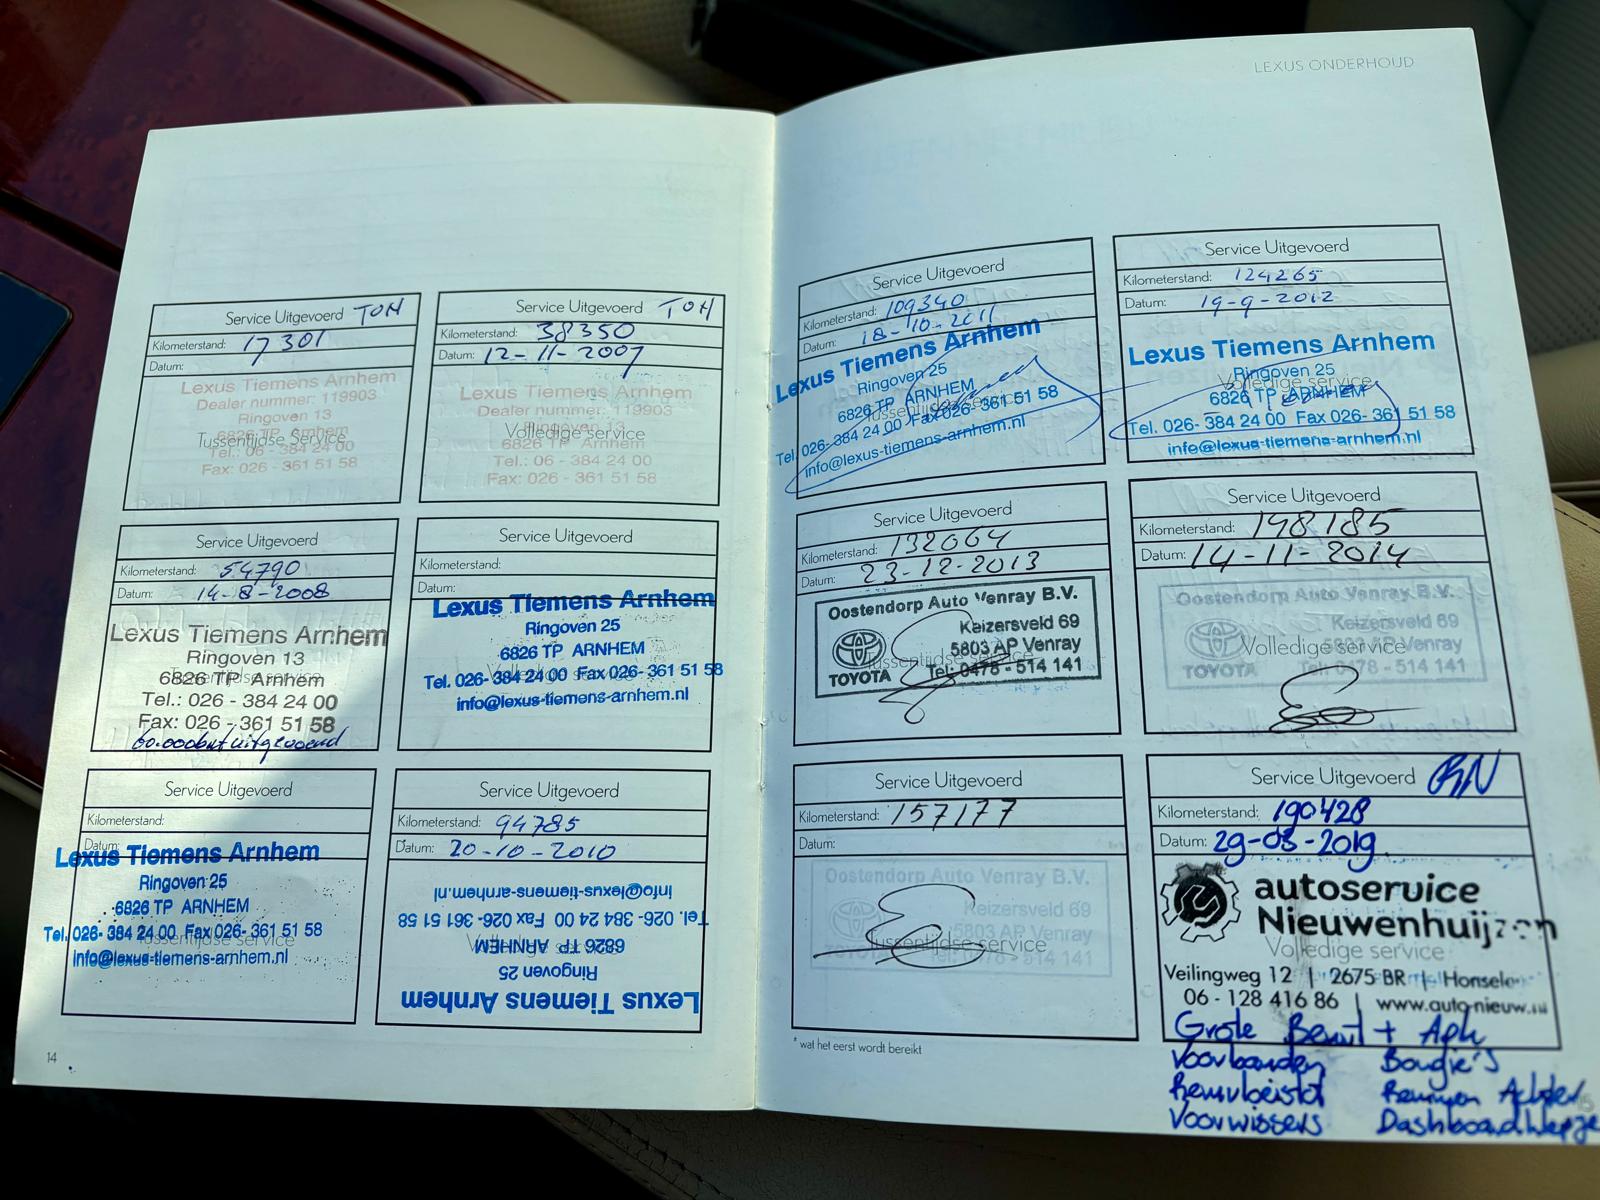 LEXUS ONDERHOUD
Service Uitgevoerd TON
Kilometerstand: 17301
Datum:
Lexus Tiemens Arnhem
Dealer nummer: 119903
Ringoven 13
6826 TP Arnhem
Tussentijdse Service
Tel.: 06 - 384 24 00
Fax: 026 - 361 51 58
Service Uitgevoerd TON
Kilometerstand: 38350
Datum: 12-11-2007
Lexus Tiemens Arnhem
Dealer nummer: 119903
Ringoven 13
Volledige service
6826 TP Arnhem
Tel.: 06 - 384 24 00
Fax: 026 - 361 51 58
Service Uitgevoerd
Kilometerstand: 54790
Datum: 14-8-2008
Lexus Tiemens Arnhem
Ringoven 13
6826 TP Arnhem
Tel.: 026 - 384 24 00
Fax: 026 - 361 51 58
60.000 uitgevoerd
Service Uitgevoerd
Kilometerstand:
Datum:
Lexus Tiemens Arnhem
Ringoven 25
6826 TP ARNHEM
Volledige service
Tel. 026- 384 24 00 Fax 026- 361 51 58
info@lexus-tiemens-arnhem.nl
Service Uitgevoerd
Kilometerstand:
Datum:
Lexus Tiemens Arnhem
Ringoven 25
6826 TP ARNHEM
Tel. 026- 384 24 00 Fax 026- 361 51 58
Tussentijdse service
info@lexus-tiemens-arnhem.nl
Service Uitgevoerd
Kilometerstand: 94785
Datum: 20-10-2010
info@lexus-tiemens-arnhem.nl
Tel. 026- 384 24 00 Fax 026- 361 51 58
6826 TP ARNHEM
Ringoven 25
Lexus Tiemens Arnhem
14
Service Uitgevoerd
Kilometerstand: 109340
Datum: 18-10-2011
Lexus Tiemens Arnhem
Ringoven 25
6826 TP ARNHEM
Tussentijdse service
Tel. 026- 384 24 00 Fax 026- 361 51 58
info@lexus-tiemens-arnhem.nl
Service Uitgevoerd
Kilometerstand: 124265
Datum: 19-9-2012
Lexus Tiemens Arnhem
Ringoven 25
Volledige service
6826 TP ARNHEM
Tel. 026- 384 24 00 Fax 026- 361 51 58
info@lexus-tiemens-arnhem.nl
Service Uitgevoerd
Kilometerstand: 132064
Datum: 23-12-2013
Oostendorp Auto Venray B.V.
Keizersveld 69
5803 AP Venray
Tussentijdse service
TOYOTA Tel: 0478 - 514 141
Service Uitgevoerd
Kilometerstand: 148185
Datum: 14-11-2014
Oostendorp Auto Venray B.V.
Keizersveld 69
Volledige service
5803 AP Venray
TOYOTA Tel: 0478 - 514 141
Service Uitgevoerd
Kilometerstand: 157177
Datum:
Oostendorp Auto Venray B.V.
Keizersveld 69
5803 AP Venray
Tussentijdse service
Tel: 0478 - 514 141
* wat het eerst wordt bereikt
Service Uitgevoerd
Kilometerstand: 190428
Datum: 29-03-2019
autoservice
Nieuwenhuijzen
Volledige service
Veilingweg 12 | 2675 BR |
06 - 128 416 86 | www.auto-nieuw.nl
Grote Beurt + Apk
Voorbanden Bougie's
Remvloeistof Remmen Achter
Voorwissers